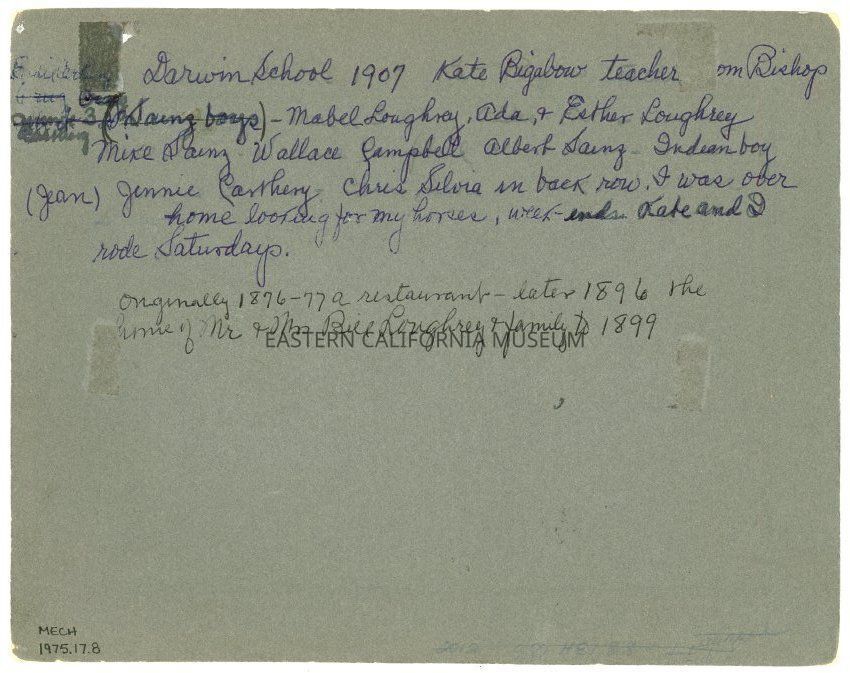 Darwin School 1907 Kate Bigabow teacher om Bishop
(Sainz boys) - Mabel Loughrey, Ada, & Esther Loughrey
Mike Sainz Wallace Campbell Albert Sainz - Indian boy
(Jean) Jennie Carthery Chris Silvia in back row. I was over
home looking for my horses, week-ends Kate and I
rode Saturdays.
Originally 1876-77 a restaurant - later 1896 the
home of Mr & Mrs Bill Loughrey & family to 1899
EASTERN CALIFORNIA MUSEUM
MECH
1975.17.8